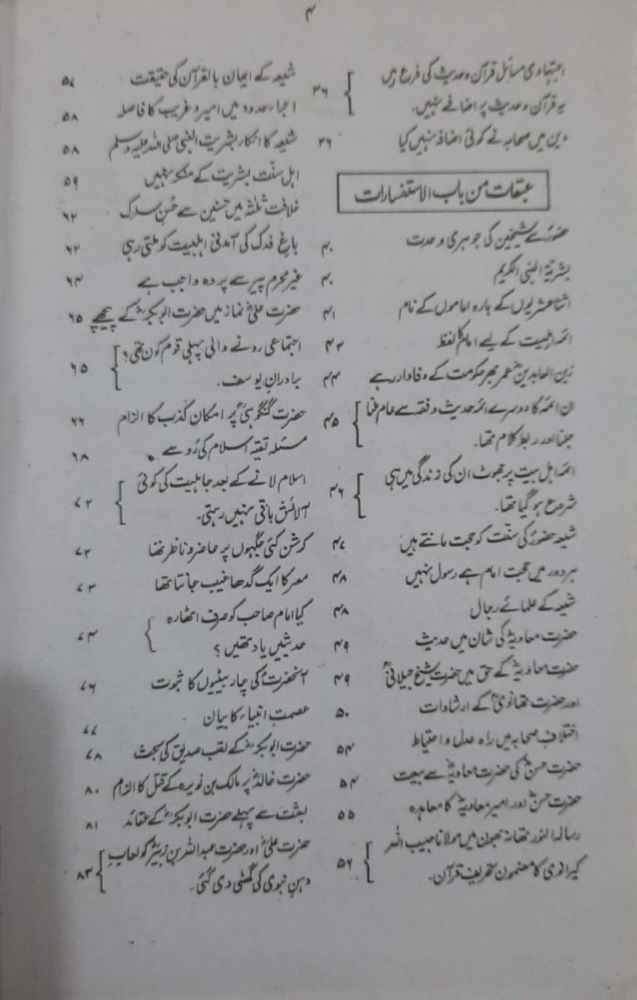 ۴
اجتہادی مسائل قرآن و حدیث کی فرع ہیں
یہ قرآن و حدیث پر اضافے نہیں۔ ۳۶
دین میں صحابہ نے کوئی اضافہ نہیں کیا ۳۶
عبقات من باب الاستفسارات
حضورؐ سے شیخین کی جوہری وحدت ۴۰
بشریۃ النبی الکریم ۴۰
اثنا عشریوں کے بارہ اماموں کے نام ۴۱
ائمہ اہلبیت کے لیے امام کا لفظ ۴۳
زین العابدینؒ عمر بھر حکومت کے وفادار رہے ۴۴
ان ائمہ کا دوسرے ائمہ حدیث و فقہ سے عام ملنا
جلنا اور ربط کلام تھا۔ ۴۵
ائمہ اہل بیت پر جھوٹ ان کی زندگی میں ہی
شروع ہو گیا تھا۔ ۴۶
شیعہ حضورؐ کی سنت کو حجت مانتے ہیں ۴۷
ہر دور میں حجت امام ہے رسول نہیں ۴۸
شیعہ کے علمائے رجال ۴۸
حضرت معاویہؓ کی شان میں حدیث ۴۹
حضرت معاویہؓ کے حق میں حضرت شیخ جیلانیؒ ۴۹
اور حضرت تھانویؒ کے ارشادات ۵۰
اختلاف صحابہ میں راہ عدل و احتیاط ۵۴
حضرت حسنؓ کی حضرت معاویہؓ سے بیعت ۵۴
حضرت حسنؓ اور امیر معاویہؓ کا معاہدہ ۵۵
رسالہ النور تھانہ بھون میں مولانا حبیب احمد
کیرانوی کا مضمون تحریف قرآن۔ ۵۶
شیعہ کے ایمان بالقرآن کی حقیقت ۵۷
اجراء حدود میں امیر و غریب کا فاصلہ ۵۸
شیعہ کا انکار بشریت النبی صلی اللہ علیہ وسلم ۵۸
اہل سنت بشریت کے منکر نہیں ۵۹
خلافت ثلثہ میں حسنین سے حسن سلوک ۶۲
باغ فدک کی آمدنی اہلبیت کو ملتی رہی ۶۲
غیر محرم پیر سے پردہ واجب ہے ۶۴
حضرت علیؓ نماز میں حضرت ابوبکرؓ کے پیچھے ۶۵
اجتماعی رونے والی پہلی قوم کون تھی؟
برادران یوسف۔ ۶۵
حضرت گنگوہیؒ پر امکان کذب کا الزام ۶۶
مسئلہ تقیہ اسلام کی رُو سے ۶۸
اسلام لانے کے بعد جاہلیت کی کوئی
آلائش باقی نہیں رہتی۔ ۷۲
کرشن کئی جگہوں پر حاضر و ناظر تھا ۷۲
مصر کا ایک گدھا غیب جانتا تھا ۷۳
کیا امام صاحب کو صرف اٹھارہ
حدیثیں یاد تھیں؟ ۷۴
آنحضرتؐ کی چار بیٹیوں کا ثبوت ۷۶
عصمت انبیاء کا بیان ۷۷
حضرت ابوبکرؓ کے لقب صدیق کی بحث ۷۸
حضرت خالدؓ پر مالک بن نویرہ کے قتل کا الزام ۸۰
بعثت سے پہلے حضرت ابوبکرؓ کے عقائد ۸۱
حضرت علیؓ اور حضرت عبداللہ بن زبیرؓ کو لعاب
دہن نبوی کی گھٹی دی گئی۔ ۸۳